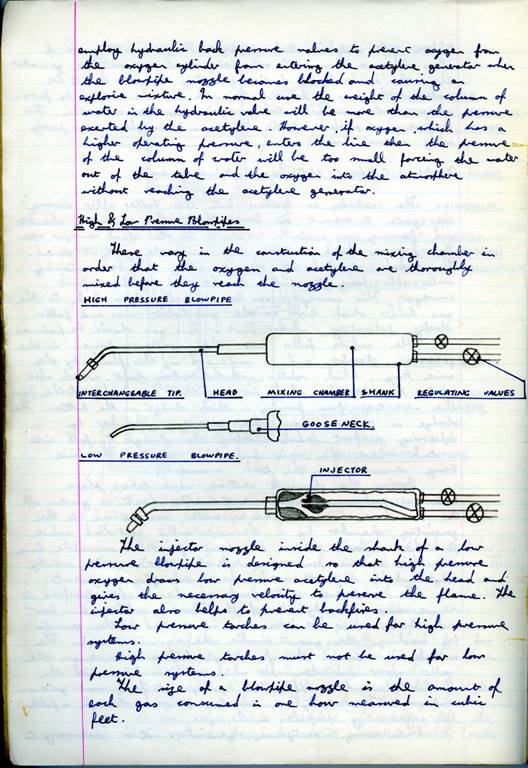 employ hydraulic back pressure valves to prevent oxygen from
the oxygen cylinder from entering the acetylene generator when
the blowpipe nozzle becomes blocked and causing an
explosive mixture. In normal use the weight of the column of
water in the hydraulic valve will be more than the pressure
exerted by the acetylene. However, if oxygen, which has a
higher operating pressure, enters the line then the pressure
of the column of water will be too small forcing the water
out of the tube and the oxygen into the atmosphere
without reaching the acetylene generator.
High & Low Pressure Blowpipes
These vary in the construction of the mixing chamber in
order that the oxygen and acetylene are thoroughly
mixed before they reach the nozzle.
HIGH PRESSURE BLOWPIPE
INTERCHANGEABLE TIP. HEAD MIXING CHAMBER SHANK REGULATING VALUES
GOOSE NECK.
LOW PRESSURE BLOWPIPE.
INJECTOR
The injector nozzle inside the shank of a low
pressure blowpipe is designed so that high pressure
oxygen draws low pressure acetylene into the head and
gives the necessary velocity to preserve the flame. The
injector also helps to prevent backfires.
Low pressure torches can be used for high pressure
systems.
High pressure torches must not be used for low
pressure systems.
The size of a blowpipe nozzle is the amount of
each gas consumed in one hour measured in cubic
feet.